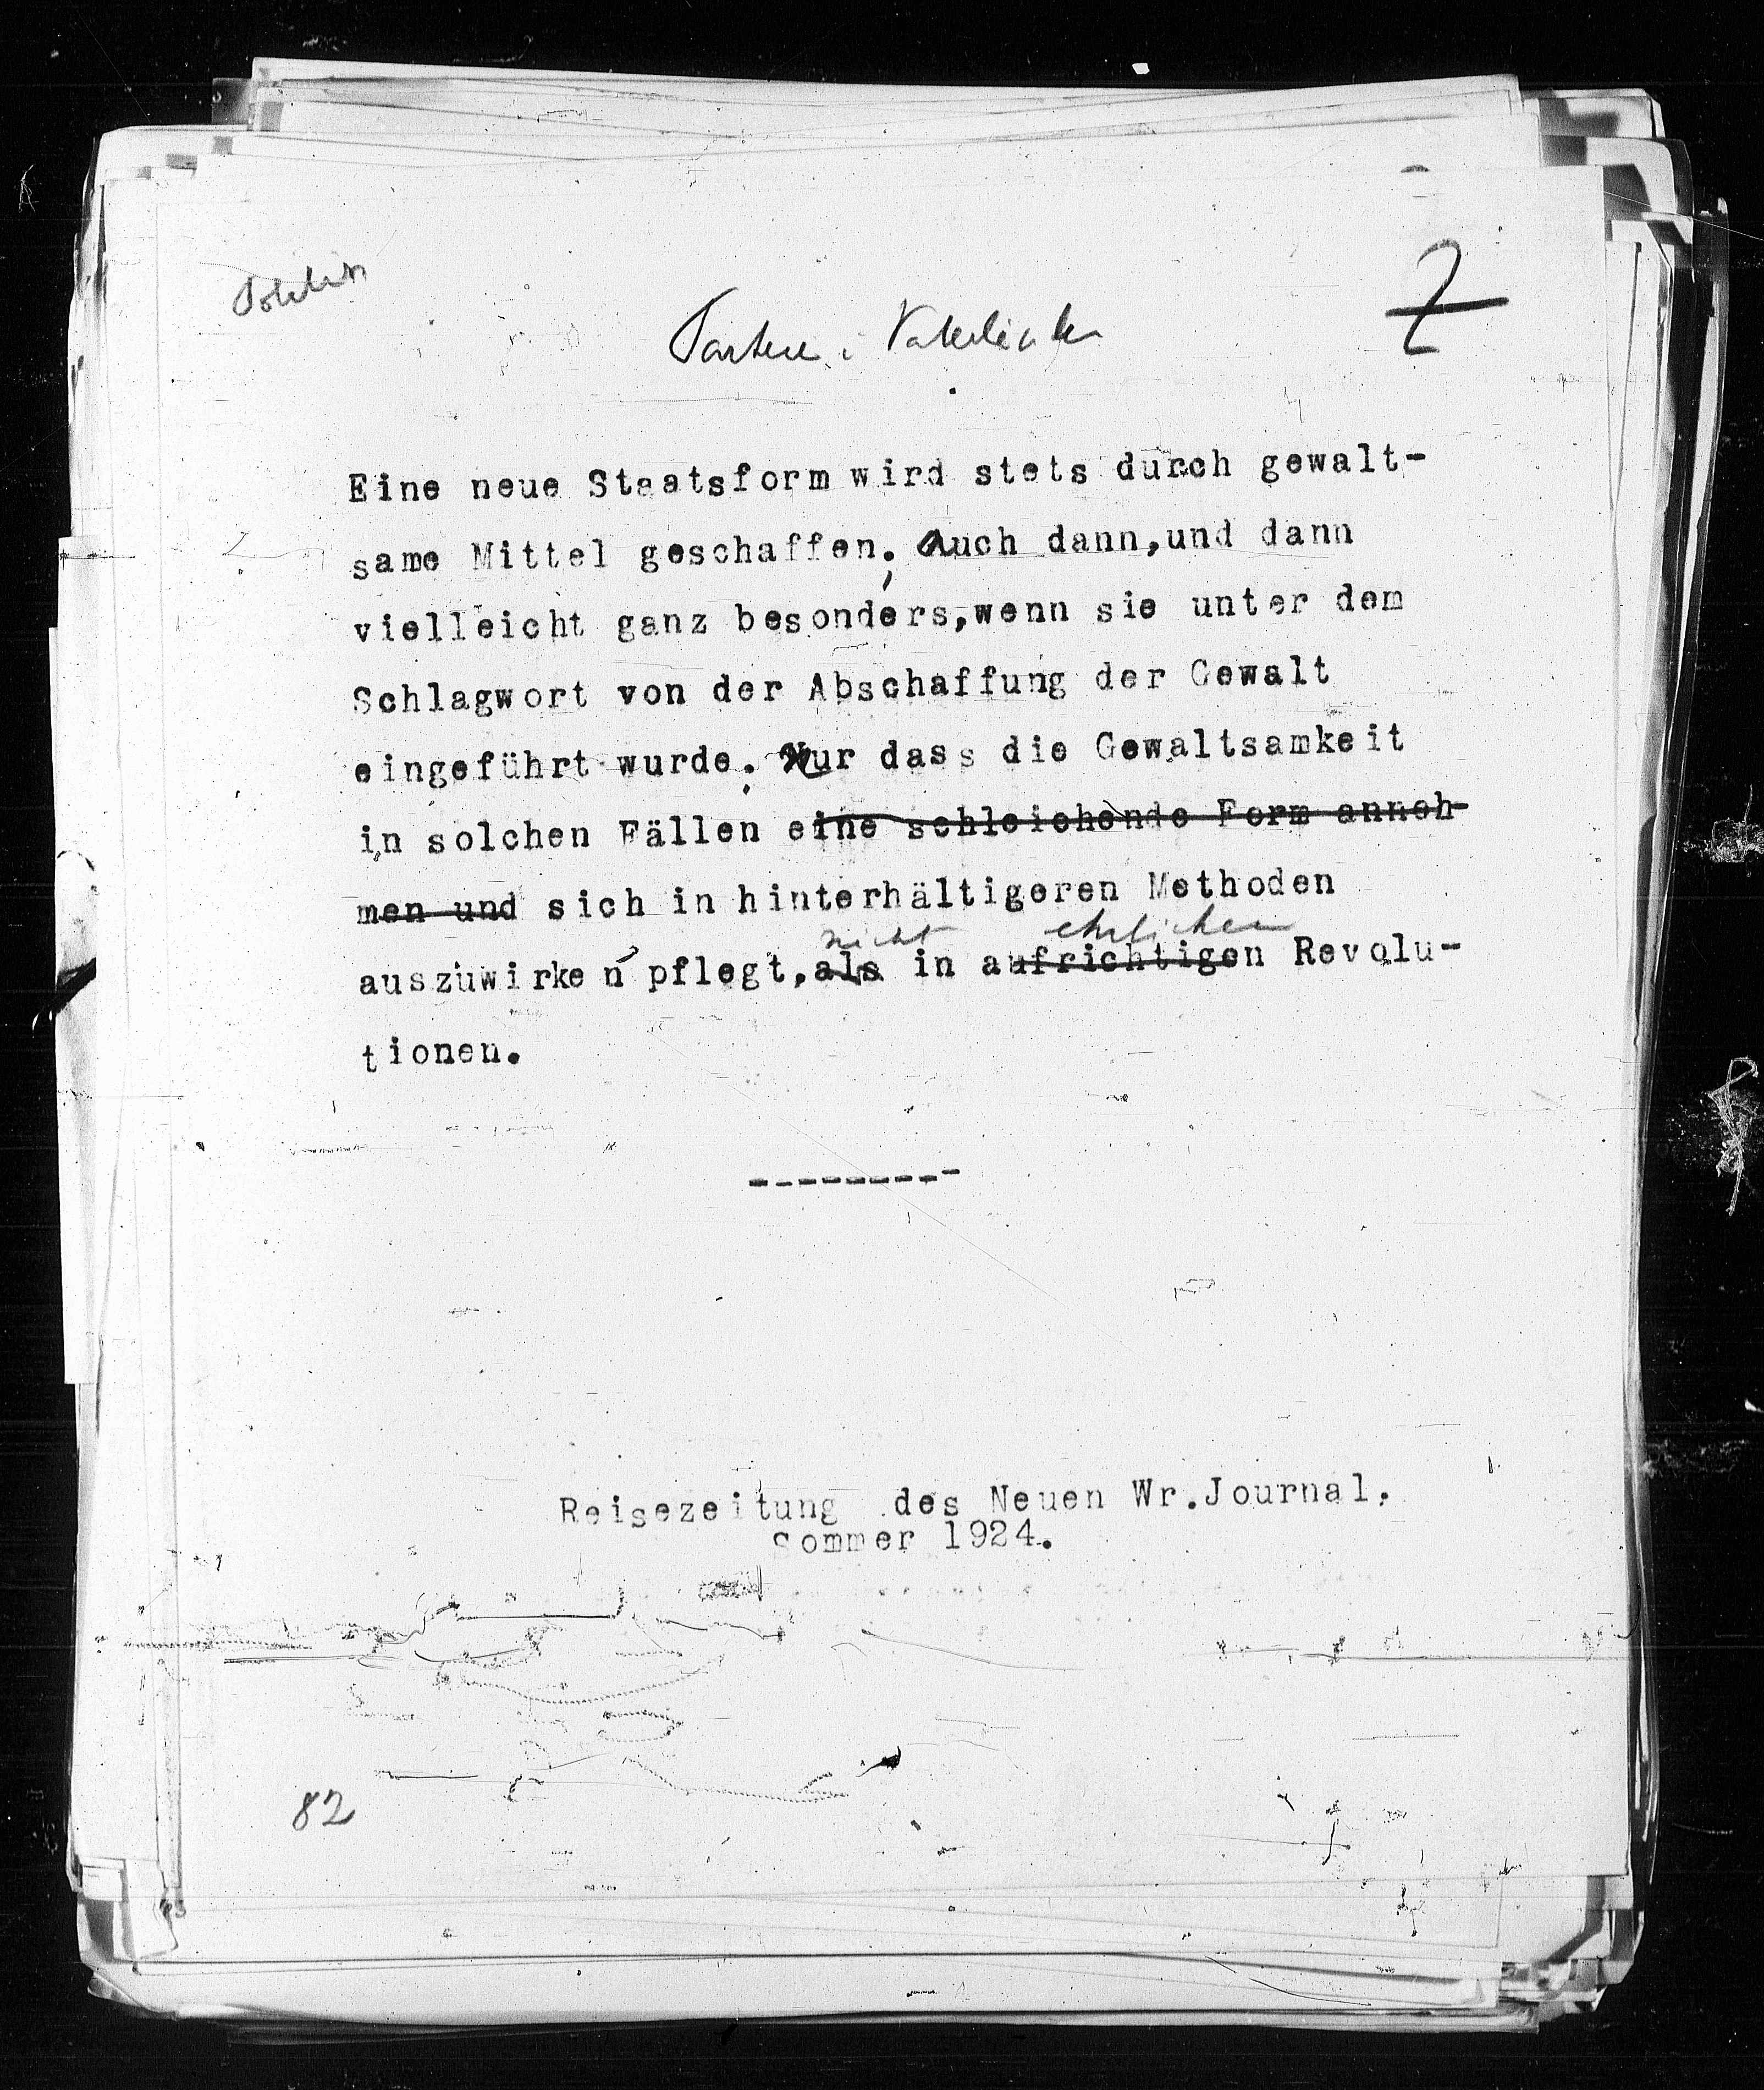 Politik
7
Eine neue Staatsform wird stets durch gewalt-
same Mittel geschaffen; auch dann, und dann
vielleicht ganz besonders, wenn sie unter dem
Schlagwort von der Abschaffung der Gewalt
eingeführt wurde; nur dass die Gewaltsamkeit
in solchen Fällen eine schleichende Form anneh-
men und sich in hinterhältigeren Methoden
nicht ehrlichen
auszuwirken pflegt, als in aufrichtigen Revolu-
tionen.
---------
Reisezeitung des Neuen Wr.Journal.
Sommer 1924.
82